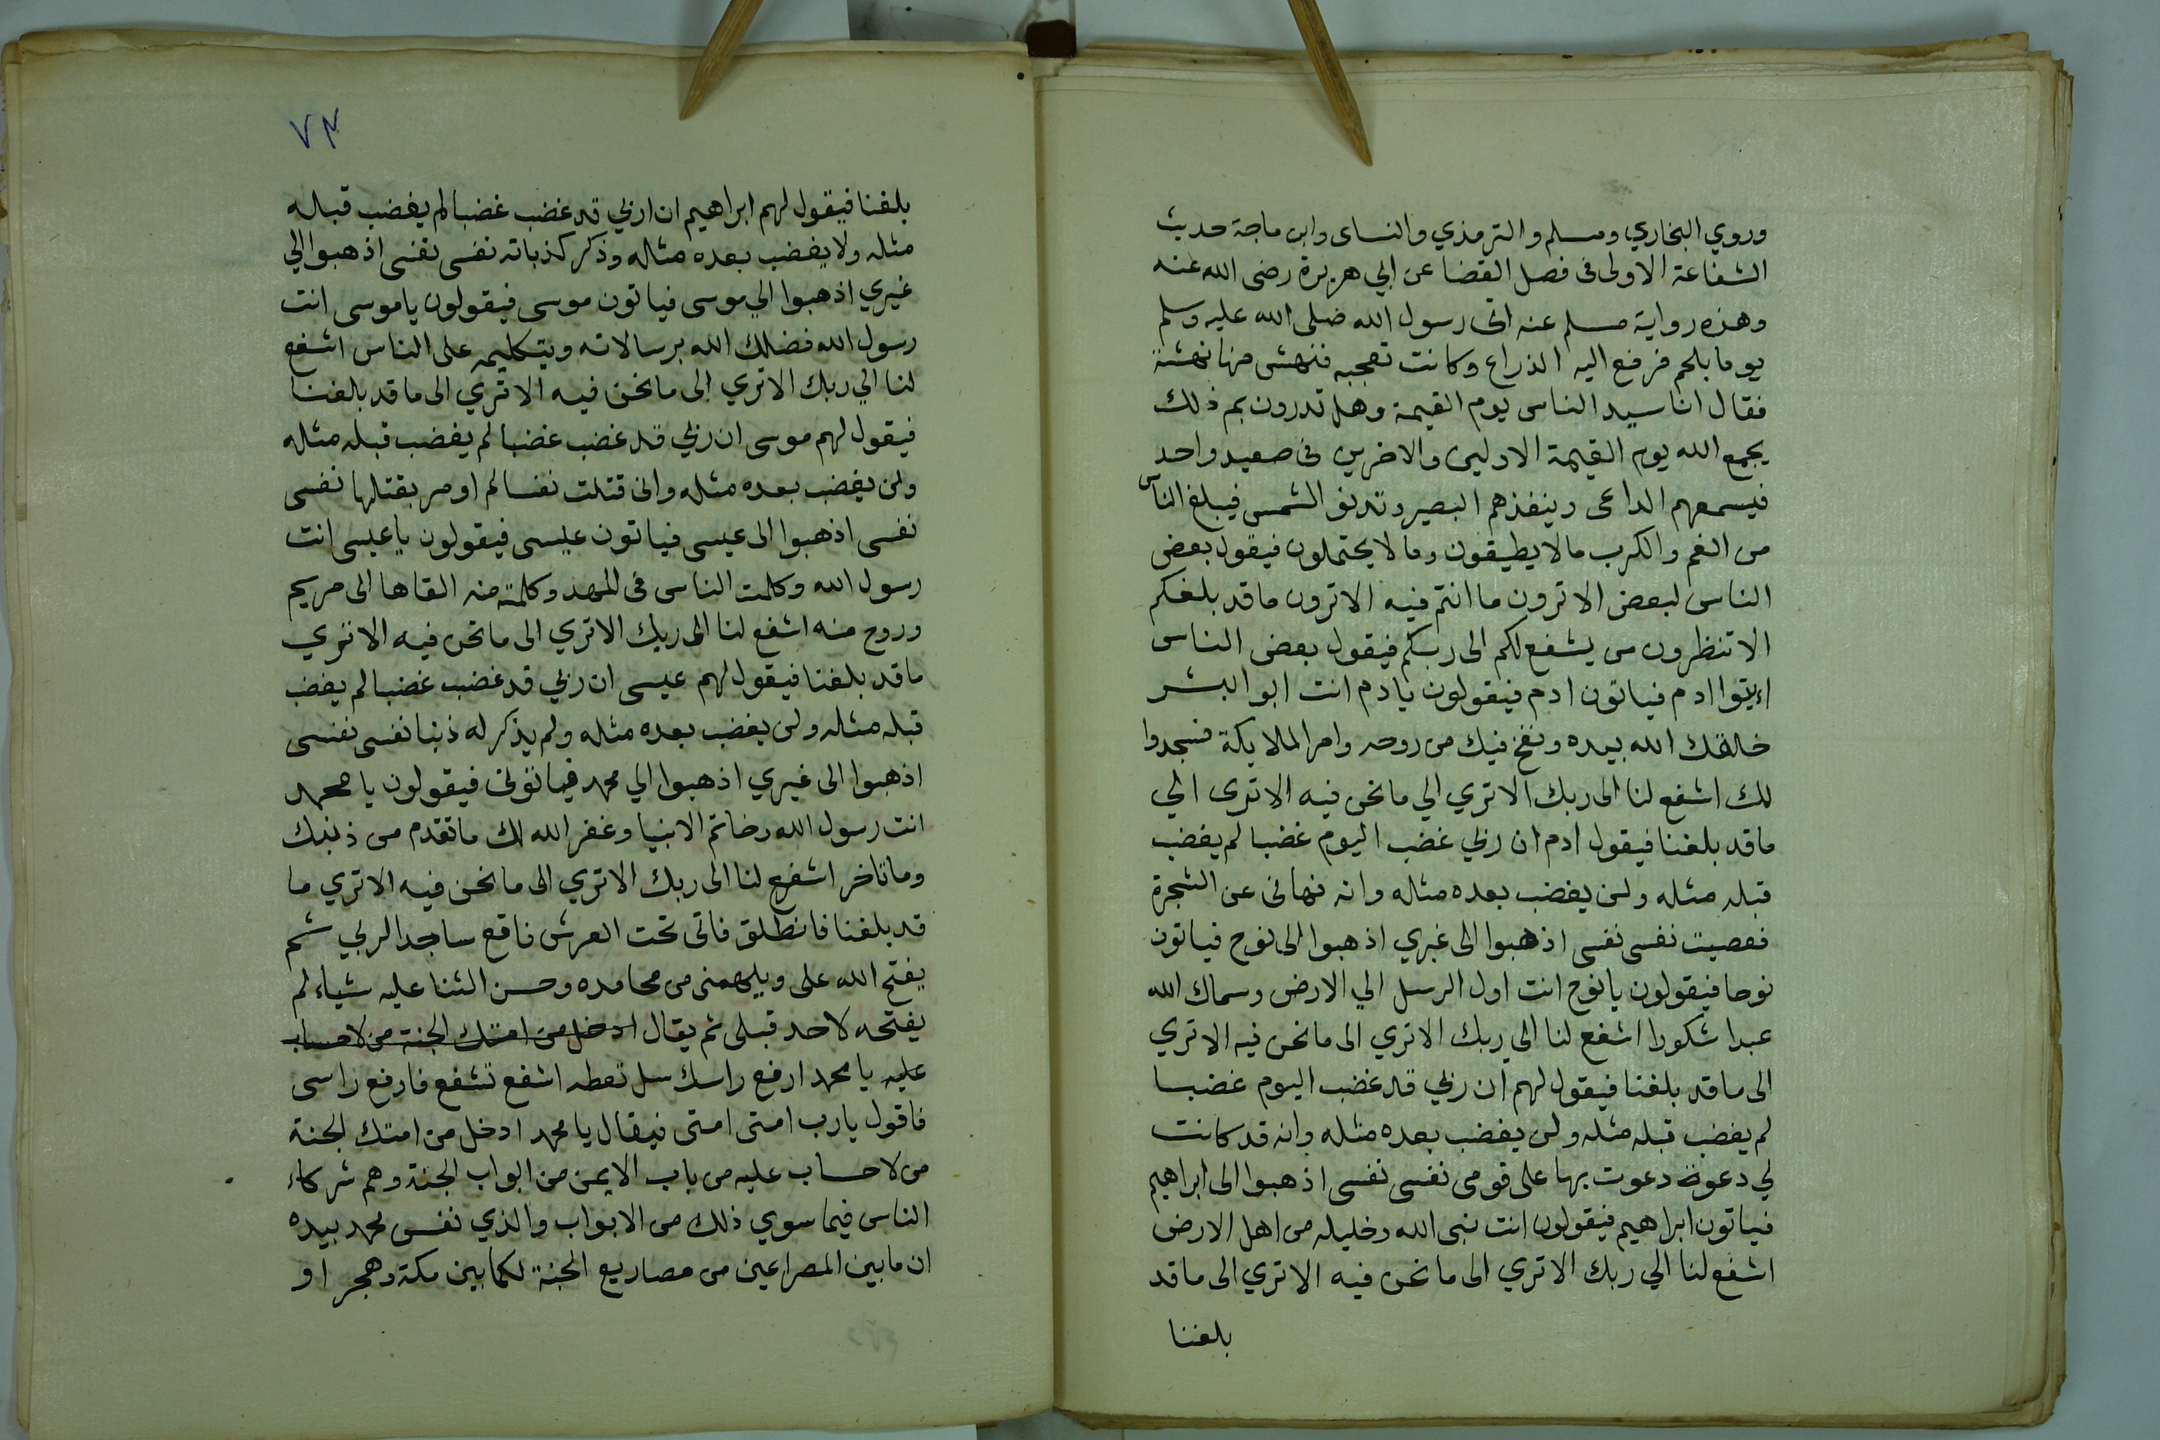 وروي البخاري ومسلم والترمذي والنساى وابن ماجة حديث
الشفاعة الاولى فى فصل القضا عن ابي هريرة رضى الله عنه
وهذه رواية مسلم عنه اتى رسول الله صلى الله عليه وسلم
يوما بلحم فرفع اليه الذراع وكانت تعجبه فنهش منها نهشة
فقال انا سيد الناس يوم القيمة وهل تدرون بم ذلك
يجمع الله يوم القيمة الاولين والاخرين فى صعيد واحد
فيسمعهم الداعى وينفذهم البصر وتدنو الشمس فيبلغ الناس
من الغم والكرب مالا يطيقون وما لا يحتملون فيقول بعض
الناس لبعض الا ترون ما انتم فيه الا ترون ما قد بلغكم
الا تنظرون من يشفع لكم الى ربكم فيقول بعض الناس
ائيتوا ادم فياتون ادم فيقولون يادم انت ابو البشر
خالقك الله بيده ونفخ فيك من روحه وامر الملايكة فسجدوا
لك اشفع لنا الى ربك الا تري الي ما نحن فيه الا ترى الي
ما قد بلغنا فيقول ادم ان ربي غضب اليوم غضبا لم يغضب
قبله مثله ولن يغضب بعده مثله وانه نهانى عن الشجرة
فعصيت نفسى نفسى اذهبوا الى غيري اذهبوا الى نوح فياتون
نوحا فيقولون يا نوح انت اول الرسل الي الارض وسماك الله
عبدا شكورا اشفع لنا الى ربك الا تري الى ما نحن فيه الا تري
الى ما قد بلغنا فيقول لهم ان ربي قد غضب اليوم غضبا
لم يغضب قبله مثله ولن يغضب بعده مثله وانه قد كانت
لي دعوة دعوت بها على قومى نفسى نفسى اذهبوا الى ابراهيم
فياتون ابراهيم فيقولون انت نبى الله وخليله من اهل الارض
اشفع لنا الي ربك الا تري الى ما نحن فيه الا تري الى ما قد
بلغنا
٧٣
بلغنا فيقول لهم ابراهيم ان ربي قد غضب غضبا لم يغضب قباله
مثله ولا يغضب بعده مثاله وذكر كذباته نفسى نفسى اذهبوا الي
غيري اذهبوا الي موسى فياتون موسى فيقولون يا موسى انت
رسول الله فضلك الله برسالاته وبتكليمه على الناس اشفع
لنا الي ربك الا تري الى ما نحن فيه الا تري الى ما قد بلغنا
فيقول لهم موسى ان ربي قد غضب غضبا لم يغضب قبله مثله
ولن يغضب بعده مثله وانى قتلت نفسا لم اومر بقتلها نفسى
نفسى اذهبوا الى عيسى فياتون عيسى فيقولون يا عيسى انت
رسول الله وكلمت الناس فى المهد وكلمة منه القاها الى مريم
وروح منه اشفع لنا الى ربك الا تري الى ما نحن فيه الا تري
ما قد بلغنا فيقول لهم عيسى ان ربي قد غضب غضبا لم يغضب
قبله مثله ولن يغضب بعده مثله ولم يذكر له ذنبا نفسى نفسى
اذهبوا الى غيري اذهبوا الي محمد فياتونى فيقولون يا محمد
انت رسول الله وخاتم الانبيا وغفر الله لك ما تقدم من ذنبك
وما تاخر اشفع لنا الى ربك الا تري الى ما نحن فيه الا تري ما
قد بلغنا فانطلق فاتى تحت العرش فاقع ساجدا لربي ثم
يفتح الله على ويلهمنى من محامده وحسن الثنا عليه شياء لم
يفتحه لاحد قبلى ثم يقال ادخل من امتك الجنة من لا حساب
عليه يا محمد ارفع راسك سل تعطه اشفع تشفع فارفع راسى
فاقول يا رب امتى امتى فيقال يا محمد ادخل من امتك الجنة
من لا حساب عليه من باب الايمن من ابواب الجنة وهم شركاء
الناس فيما سوي ذلك من الابواب والذي نفس محمد بيده
ان ما بين المصراعين من مصاريع الجنة لكما بين مكة وهجر او